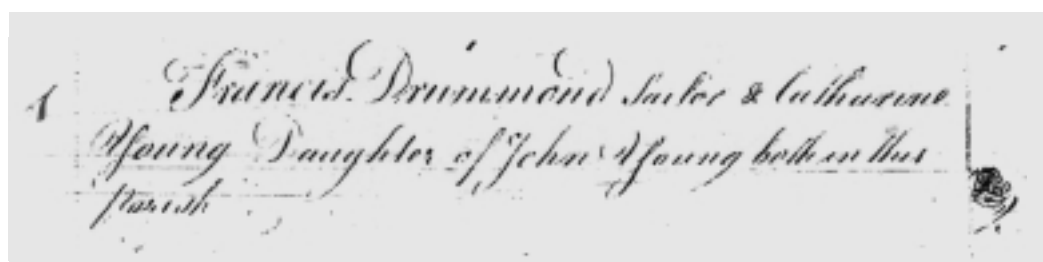 1 Francis Drummond Sailor & Catharine
Young Daughter of John Young both in this
Parish